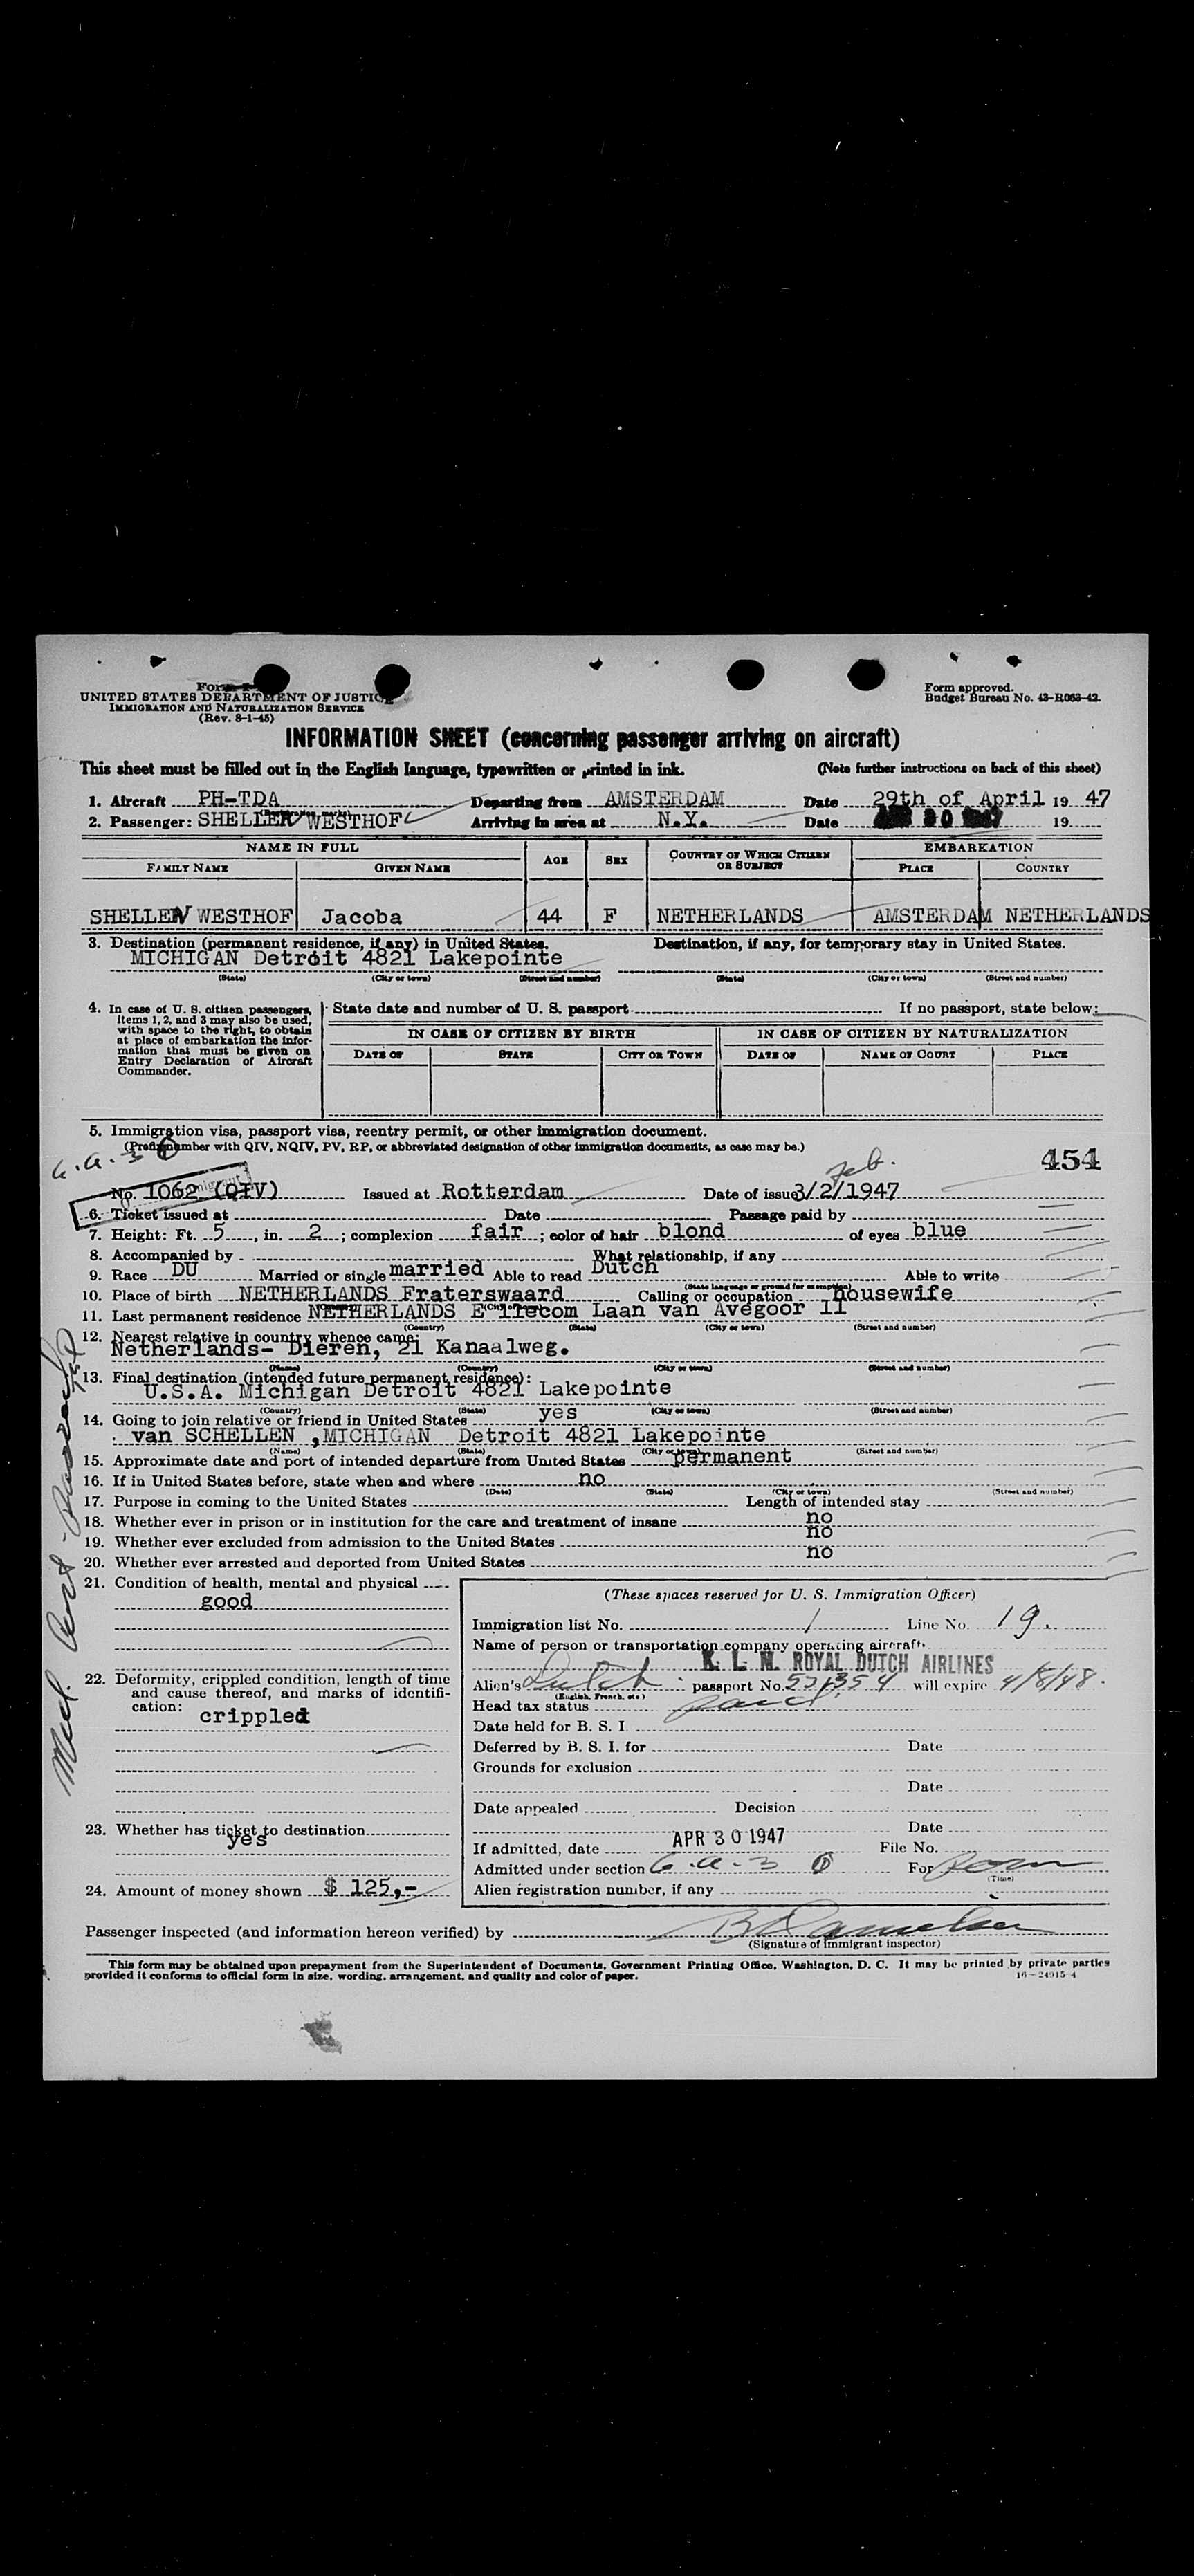 Form
UNITED STATES DEPARTMENT OF JUSTICE
IMMIGRATION AND NATURALIZATION SERVICE
(Rev. 8-1-45)
Form approved.
Budget Bureau No. 43-R063-42.
INFORMATION SHEET (concerning passenger arriving on aircraft)
This sheet must be filled out in the English language, typewritten or printed in ink. (Note further instructions on back of this sheet)
1. Aircraft PH-TDA Departing from AMSTERDAM Date 29th of April 19 47
2. Passenger: SHELLEN WESTHOF Arriving in area at N.Y. Date 19
NAME IN FULL AGE SEX COUNTRY OF WHICH CITIZEN OR SUBJECT EMBARKATION
FAMILY NAME GIVEN NAME PLACE COUNTRY
SHELLEN WESTHOF Jacoba 44 F NETHERLANDS AMSTERDAM NETHERLANDS
3. Destination (permanent residence, if any) in United States. Destination, if any, for temporary stay in United States.
MICHIGAN Detroit 4821 Lakepointe
(State) (City or town) (Street and number) (State) (City or town) (Street and number)
4. In case of U. S. citizen passengers, items 1, 2, and 3 may also be used, with space to the right, to obtain at place of embarkation the information that must be given on Entry Declaration of Aircraft Commander.
State date and number of U. S. passport If no passport, state below:
IN CASE OF CITIZEN BY BIRTH IN CASE OF CITIZEN BY NATURALIZATION
DATE OF STATE CITY OR TOWN DATE OF NAME OF COURT PLACE
5. Immigration visa, passport visa, reentry permit, or other immigration document.
(Prefix number with QIV, NQIV, PV, RP, or abbreviated designation of other immigration documents, as case may be.)
6.a.3
454
Feb.
No. 1062 (QIV) Issued at Rotterdam Date of issue 3/2/1947
6. Ticket issued at Date Passage paid by
7. Height: Ft. 5, in. 2; complexion fair; color of hair blond of eyes blue
8. Accompanied by What relationship, if any
9. Race DU Married or single married Able to read Dutch Able to write
(State language or ground for exemption)
10. Place of birth NETHERLANDS Fraterswaard Calling or occupation housewife
11. Last permanent residence NETHERLANDS Ellecom Laan van Avegoor 11
(Country) (State) (City or town) (Street and number)
12. Nearest relative in country whence came:
Netherlands- Dieren, 21 Kanaalweg.
(Name) (Country) (City or town) (Street and number)
13. Final destination (intended future permanent residence):
U.S.A. Michigan Detroit 4821 Lakepointe
(Country) (State) (City or town) (Street and number)
14. Going to join relative or friend in United States yes
van SCHELLEN ,MICHIGAN Detroit 4821 Lakepointe
(Name) (State) (City or town) (Street and number)
15. Approximate date and port of intended departure from United States permanent
16. If in United States before, state when and where no
(Date) (State) (City or town) (Street and number)
17. Purpose in coming to the United States Length of intended stay
18. Whether ever in prison or in institution for the care and treatment of insane no
19. Whether ever excluded from admission to the United States no
20. Whether ever arrested and deported from United States no
Med. Cert
21. Condition of health, mental and physical
good
22. Deformity, crippled condition, length of time and cause thereof, and marks of identification:
crippled
23. Whether has ticket to destination
yes
24. Amount of money shown $ 125,-
(These spaces reserved for U. S. Immigration Officer)
Immigration list No. 1 Line No. 19.
Name of person or transportation company operating aircraft
K. L. M. ROYAL DUTCH AIRLINES
Alien's Dutch passport No. will expire 4/8/48.
(English, French, etc.)
Head tax status paid
Date held for B. S. I.
Deferred by B. S. I. for Date
Grounds for exclusion
Date
Date appealed Decision
Date
If admitted, date APR 30 1947 File No.
Admitted under section 6.a.3 For Perm
(Time)
Alien registration number, if any
Passenger inspected (and information hereon verified) by
(Signature of immigrant inspector)
This form may be obtained upon prepayment from the Superintendent of Documents, Government Printing Office, Washington, D. C. It may be printed by private parties
provided it conforms to official form in size, wording, arrangement, and quality and color of paper.
16-24915-4